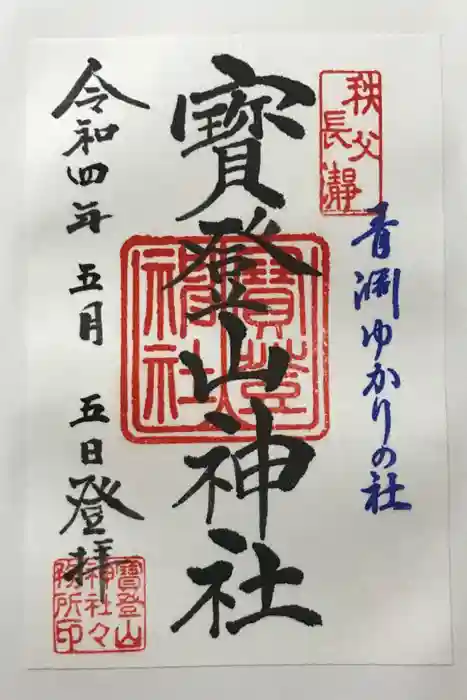 秩父
長瀞
青淵ゆかりの社
寳登山神社
寳登
山神社
令和四年 五月 五日登拝
寳登山
神社々
務所印